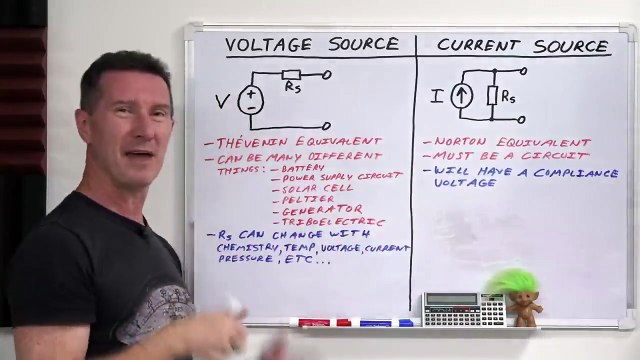 VOLTAGE SOURCE
V
+
−
Rs
– THÉVENIN EQUIVALENT
– CAN BE MANY DIFFERENT
THINGS: – BATTERY
– POWER SUPPLY CIRCUIT
– SOLAR CELL
– PELTIER
– GENERATOR
– TRIBOELECTRIC
– Rs CAN CHANGE WITH
CHEMISTRY, TEMP, VOLTAGE, CURRENT
PRESSURE, ETC...
CURRENT SOURCE
I
Rs
– NORTON EQUIVALENT
– MUST BE A CIRCUIT
– WILL HAVE A COMPLIANCE
VOLTAGE